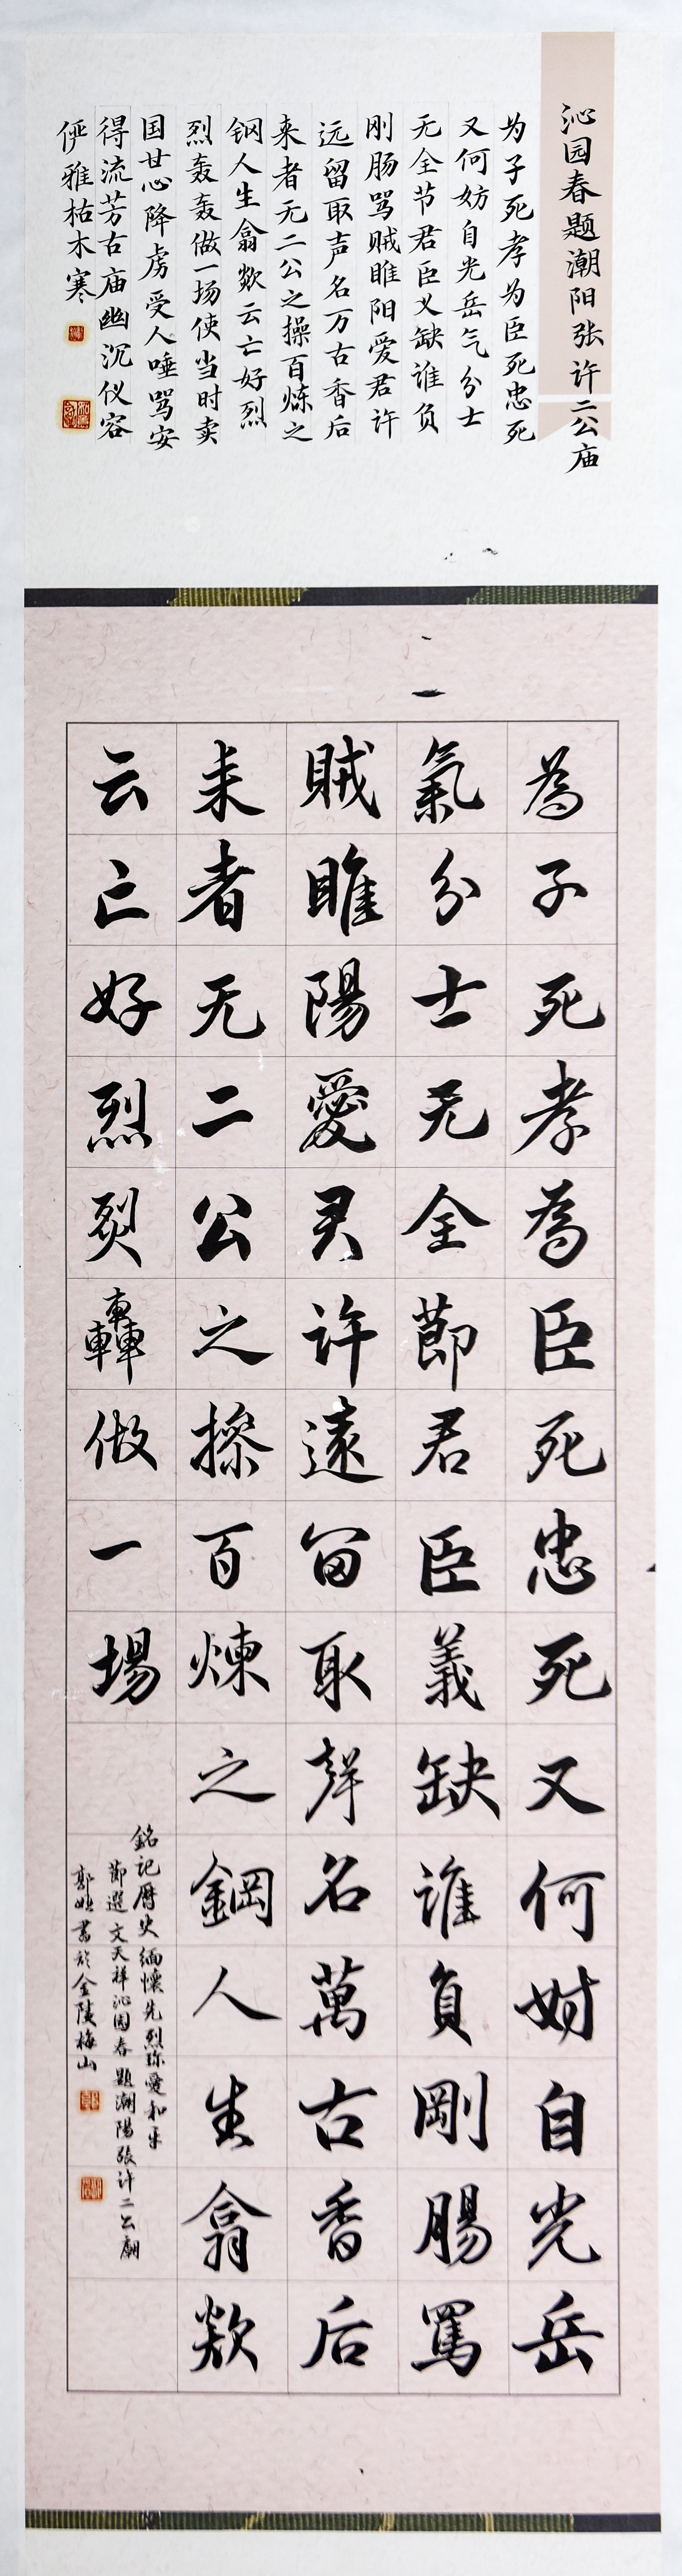 沁园春题潮阳张许二公庙
为子死孝为臣死忠死
又何妨自光岳气分士
无全节君臣义缺谁负
刚肠骂贼睢阳爱君许
远留取声名万古香后
来者无二公之操百炼之
钢人生翕欻云亡好烈
烈轰轰做一场使当时卖
国甘心降虏受人唾骂安
得流芳古庙幽沉仪容
俨雅枯木寒
為子死孝為臣死忠死又何妨自光岳
氣分士无全節君臣義缺谁負剛腸罵
賊睢陽愛君許遠留取聲名萬古香后
来者无二公之操百煉之鋼人生翕欻
云亡好烈烈轟做一場
銘記曆史緬懷先烈珍愛和平
節選文天祥沁园春題潮陽張许二公廟
郭 書於金陵梅山